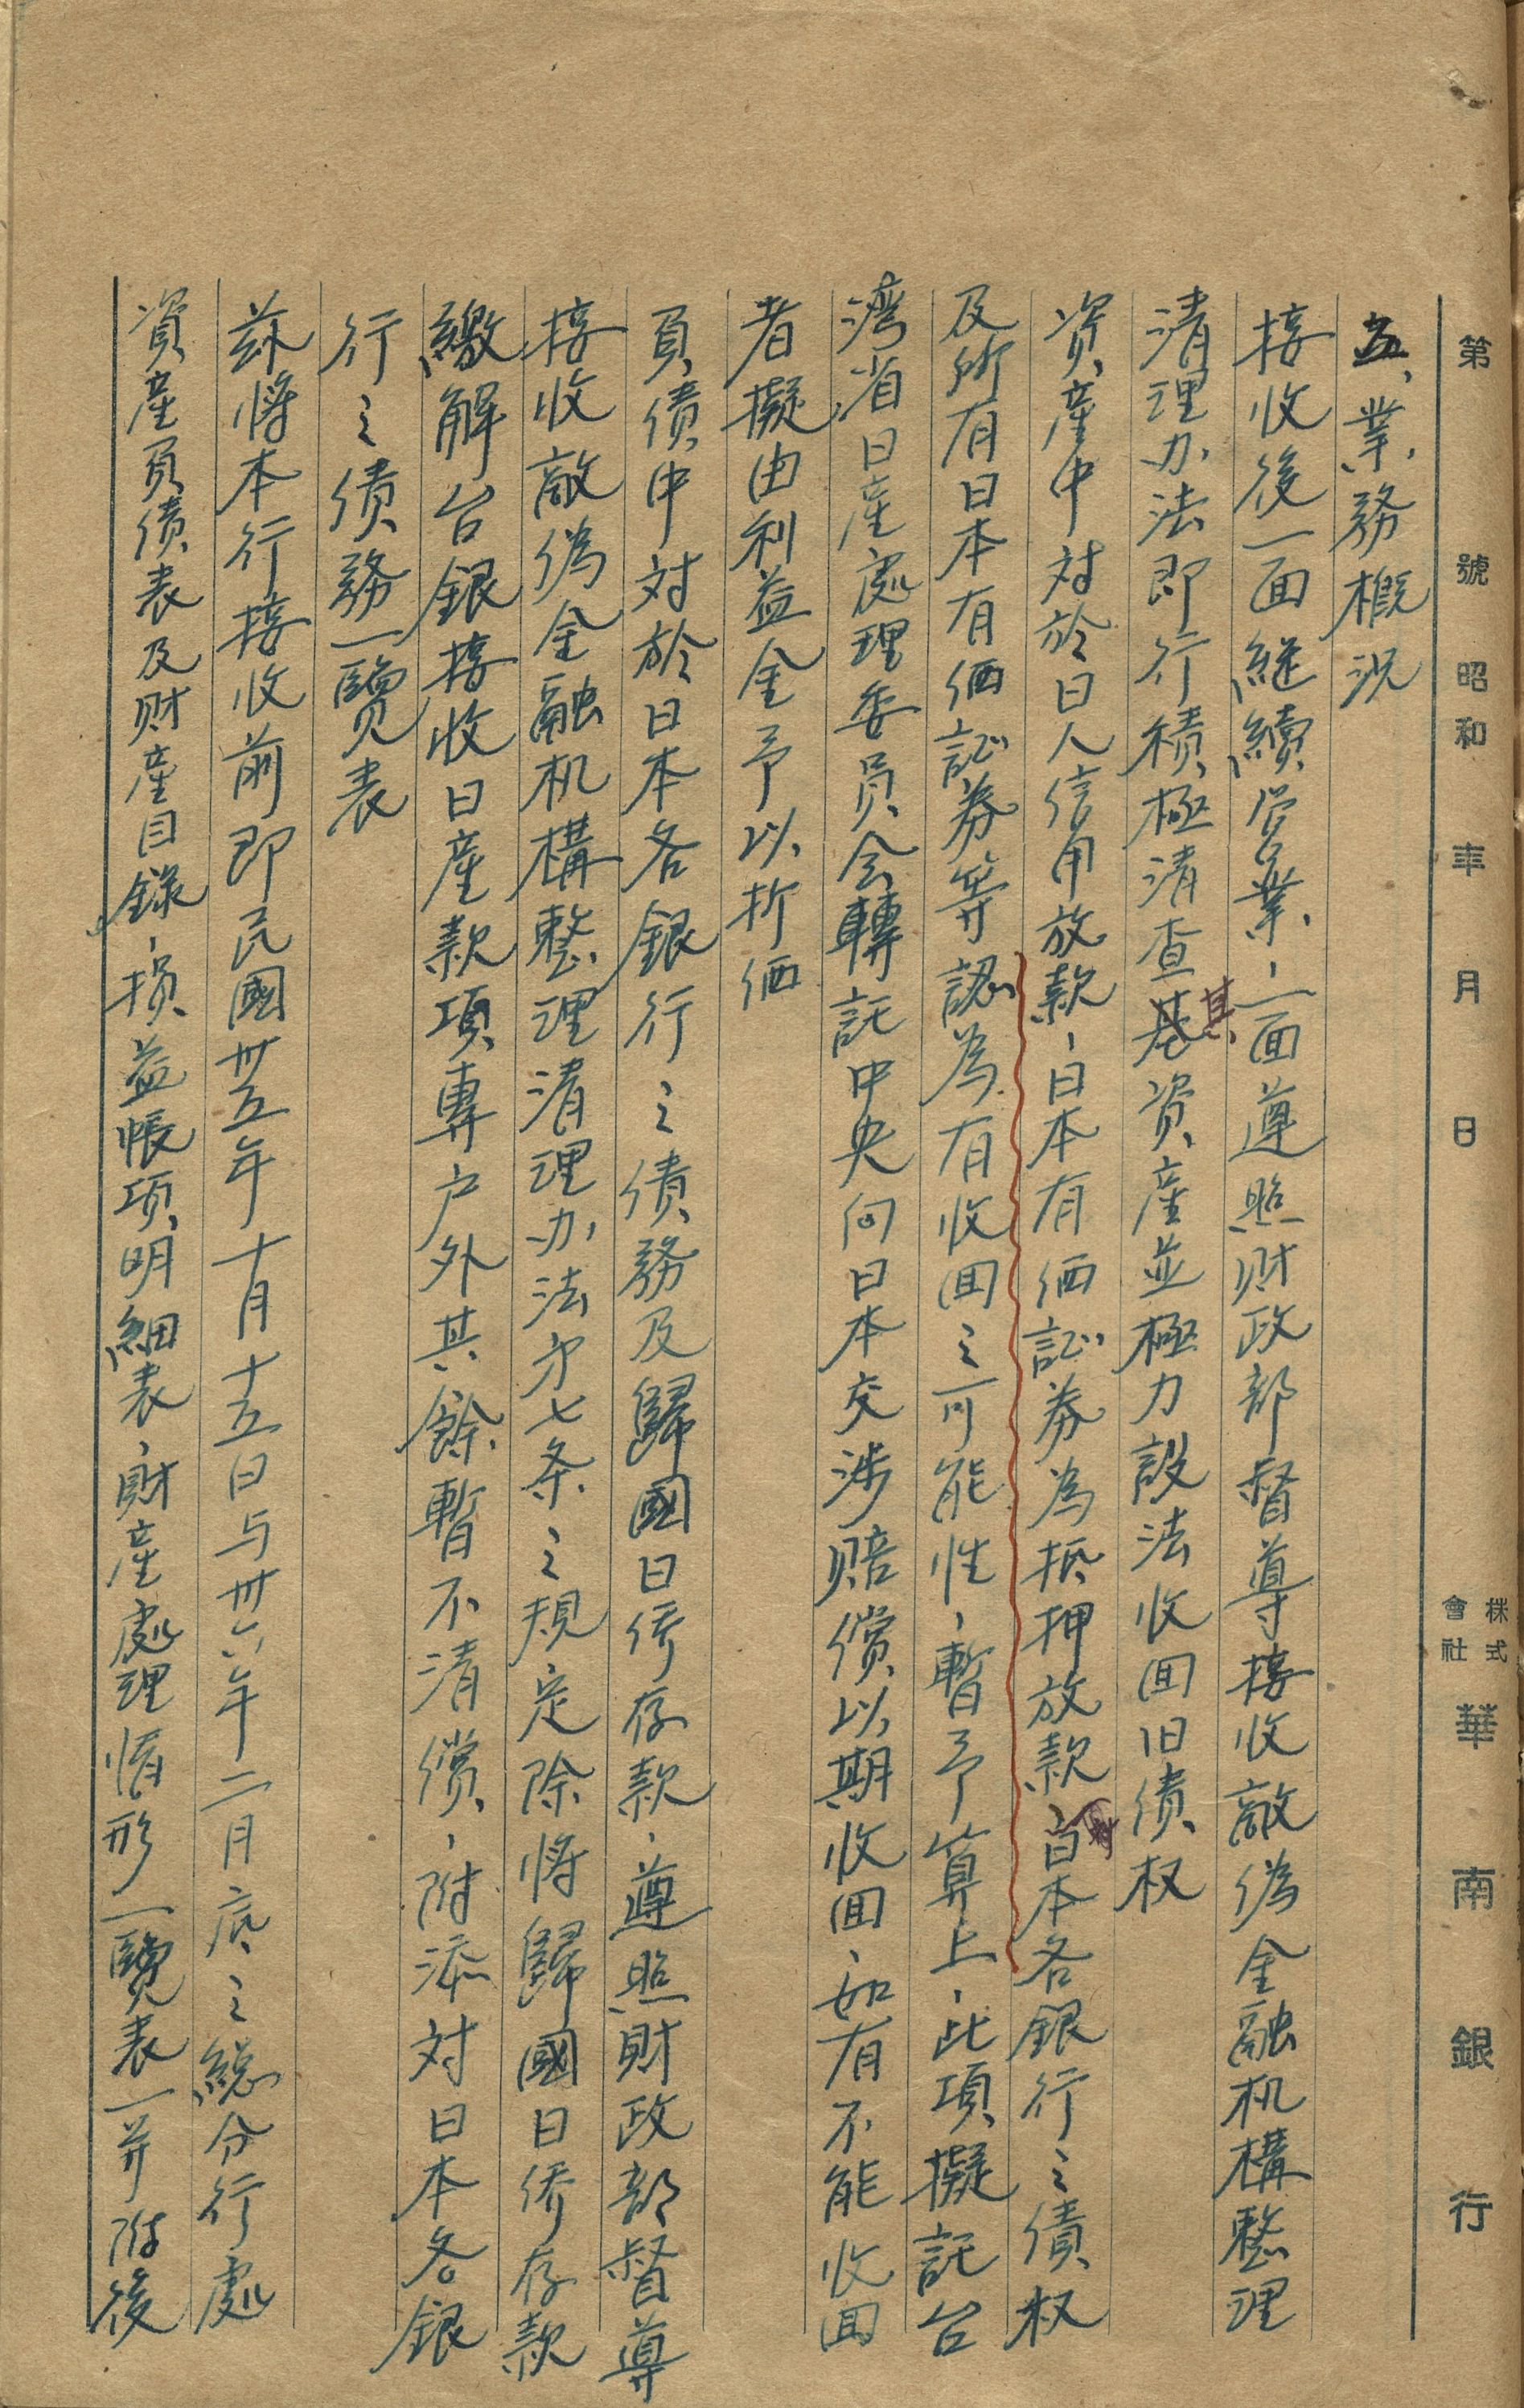 第 號 昭和 年 月 日
株式會社 華南銀行
五、業務概況
接收後一面継續営業，一面遵照財政部督導接收敵偽金融机構整理
清理办法即行積極清查其資產並極力設法收回旧債权
資產中対於日人信用放款，日本有価証券為抵押放款，日本各銀行之債权
及所有日本有価証券等認為有收回之可能性，暫予算上，此項擬託台
湾省日產處理委員会轉託中央向日本交涉賠償以期收回，如有不能收回
者擬由利益金予以折価
負債中対於日本各銀行之債務及歸國日侨存款，遵照財政部督導
接收敵偽金融机構整理清理办法才七条之規定除將歸國日侨存款
繳解台銀接收日產款項專户外其餘暫不清償，附添対日本各銀
行之債務一覽表
茲將本行接收前即民國卅五年十月十五日与卅六年二月底之總分行處
資產負債表及财產目錄，損益帳項明細表，財產處理情形一覽表一并附後